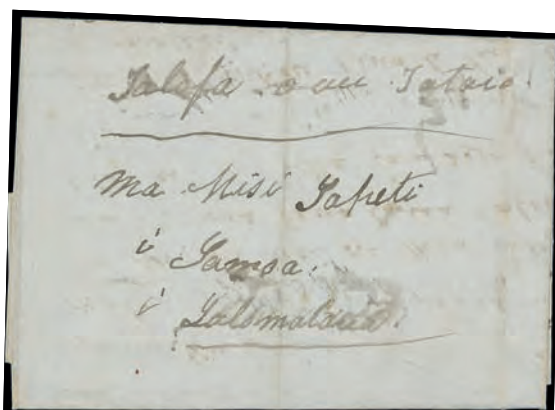 Talofa o au
ma Misi Sapeti
i Samoa.
i Lalomalava.